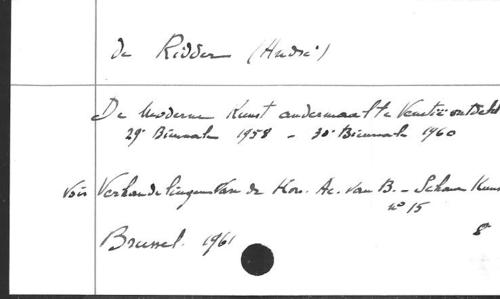 de Ridder (André)
De Moderne Kunst andermaal te Venetië ontdekt
29e Biennale 1958 - 30e Biennale 1960
voir Verhandelingen van de Kon. Ac. van B. - Schone Kuns
n° 15
8°
Brussel. 1961